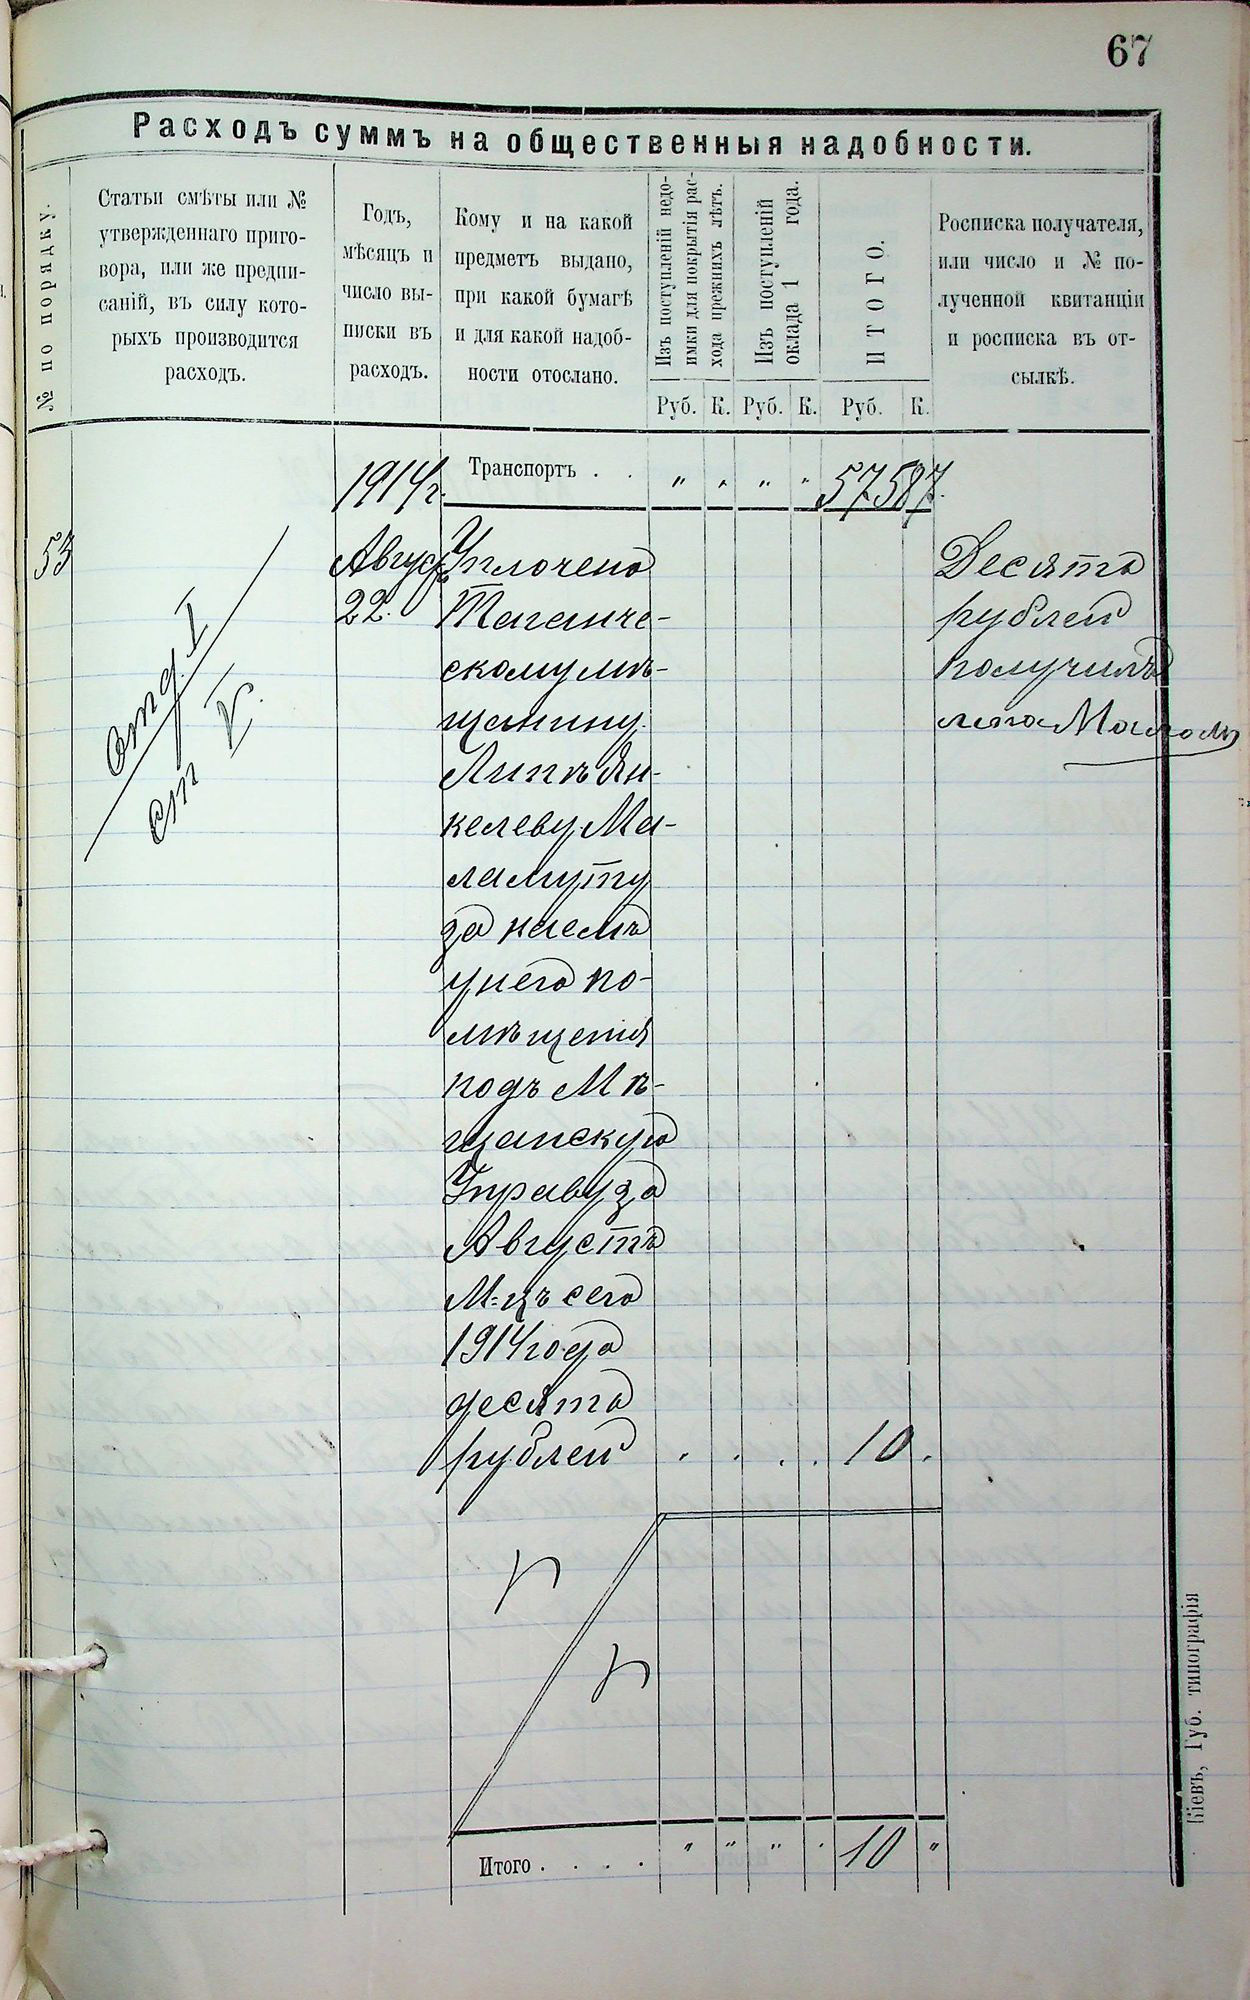 67
Расходъ суммъ на общественныя надобности.
№ по порядку.
Статьи смѣты или №
утвержденнаго приго-
вора, или же предпи-
саній, въ силу кото-
рыхъ производится
расходъ.
Годъ,
мѣсяцъ и
число вы-
писки въ
расходъ.
Кому и на какой
предметъ выдано,
при какой бумагѣ
и для какой надоб-
ности отослано.
Изъ поступленій недо-
имки для покрытія рас-
хода прежнихъ лѣтъ.
Изъ поступленій
оклада 1 года.
ИТОГО.
Росписка получателя,
или число и № по-
лученной квитанціи
и росписка въ от-
сылкѣ.
Руб. К. Руб. К. Руб. К.
1914г. Транспортъ . . " " " " 575 87.
53
Отд. I
ст V.
Август
22.
Уплочено
Таганче-
скому мѣ-
щанину
Липѣ Ян-
келеву Ма-
ламуту
за наемъ
у него по-
мѣщенія
подъ Мѣ-
щанскую
Управу за
Августъ
М-цъ сего
1914 года
десять
рублей . . . . 10 .
Десять
рублей
получилъ
Итого . . . . " " " " 10 "
Кіевъ, Губ. типографія